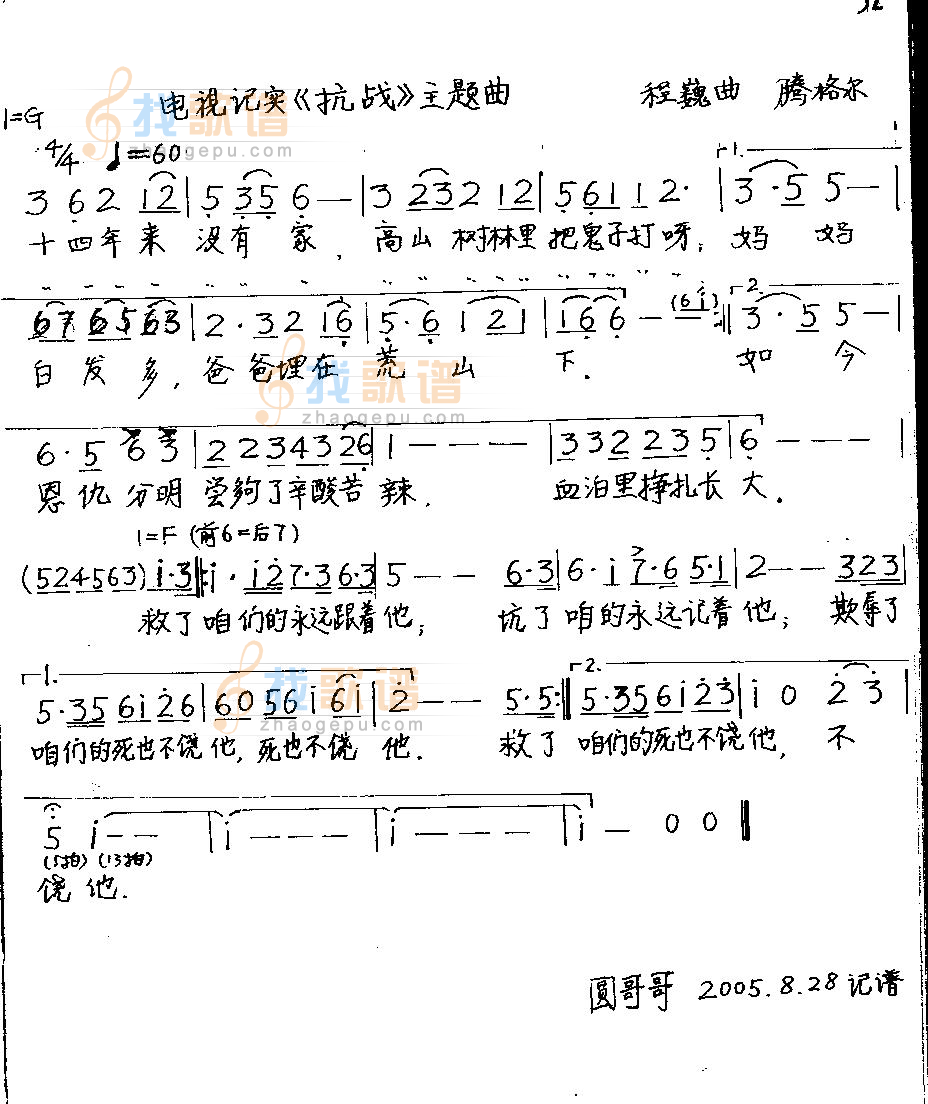 电视记实《抗战》主题曲 程巍曲 腾格尔
1=G
4/4 ♩=60
3 6 2 12 | 5 35 6 — | 3 23 2 12 | 5 61 1 2· | 1. 3·5 5 — |
十四年来 没有家,高山树林里把鬼子打呀;妈妈
67 65 63 | 2·32 16 | 5·6 121 | 166 — (6i) :‖ 2. 3·5 5 — |
白发多,爸爸埋在荒山下. 如今
6·5 6 3 | 2 2 3 4 3 26 | 1 — — — | 3 3 2 2 3 5 | 6 — — — |
恩仇分明 尝够了辛酸苦辣. 血泊里挣扎长大.
1=F (前6=后7)
(524563) i·3 ‖: i·i27·36·3 | 5 — — 6·3 | 6·i7·65·1 | 2 — — 323 |
救了咱们的永远跟着他; 坑了咱的永远记着他; 欺辱了
1. 5·356i26 | 6056i6i | 2 — — 5·5 :‖ 2. 5·356i23 | i 0 2 3 |
咱们的死也不饶他,死也不饶他. 救了咱们的死也不饶他,不
5 i — — | i — — — | i — — — | i — 0 0 ‖
(5拍) (13拍)
饶他.
圆哥哥 2005.8.28 记谱
找歌谱
zhaogepu.com
找歌谱
zhaogepu.com
找歌谱
zhaogepu.com